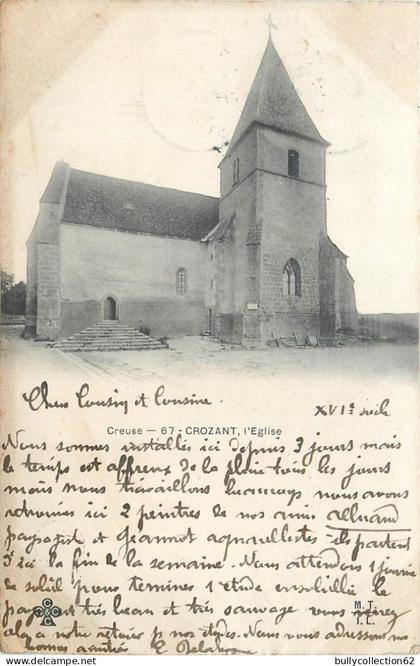 Chers Cousin et Cousine.
XVIe siècle
Creuse — 67 - CROZANT, l'Eglise
Nous sommes installés ici depuis 3 jours mais
le temps est affreux de la pluie tous les jours
mais nous travaillons beaucoup nous avons
retrouvés ici 2 peintres de nos amis
paysagiste et Jeannot aquarelliste ils partent
d'ici la fin de la semaine. Nous attendons 1 journée
de soleil pour terminer 1 étude
le pays est très beau et très sauvage vous
à notre retour nos études. Nous vous adressons nos
bonnes amitiés E. Delahogue
M.T.
I.L.
www.bullycollection62